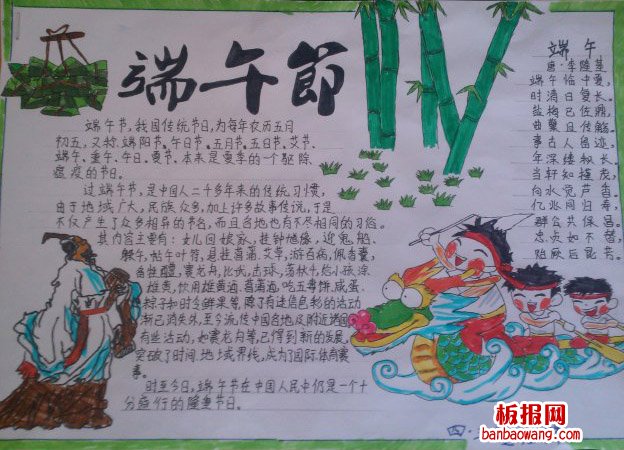 端午節
端午节,我国传统节日,为每年农历五月
初五,又称端阳节、午日节、五月节、五日节、艾节、
端午、重午、午日、夏节。本来是夏季的一个驱除
瘟疫的节日。
过端午节,是中国人二千多年来的传统习惯,
由于地域广大,民族众多,加上许多故事传说,于是
不仅产生了众多相异的节名,而且各地也有不尽相同的习俗。
其内容主要有:女儿回娘家,挂钟馗像,迎鬼船、
躲午,帖午叶符,悬挂菖蒲、艾草,游百病,佩香囊,
备牲醴,赛龙舟,比武,击球,荡秋千,给小孩涂
雄黄,饮用雄黄酒、菖蒲酒,吃五毒饼、咸蛋、
粽子和时令鲜果等,除了有迷信色彩的活动
渐已消失外,至今流传中国各地及附近诸国。
有些活动,如赛龙舟等,已得到新的发展,
突破了时间、地域界线,成为了国际体育赛
事。
时至今日,端午节在中国人民中仍是一个十
分盛行的隆重节日。
端午
唐·李隆基
端午临中夏,
时清日复长。
盐梅已佐鼎,
曲糵且传觞。
事古人留迹,
年深缕积长。
当轩知槿茂,
向水觉芦香。
亿兆同归寿,
群公共保昌。
忠贞如不替,
贻厥后昆芳。
四·
板报网
banbaowang.com